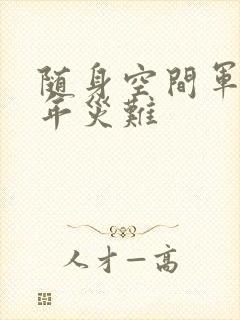 随身空間軍
年災難
人才一高